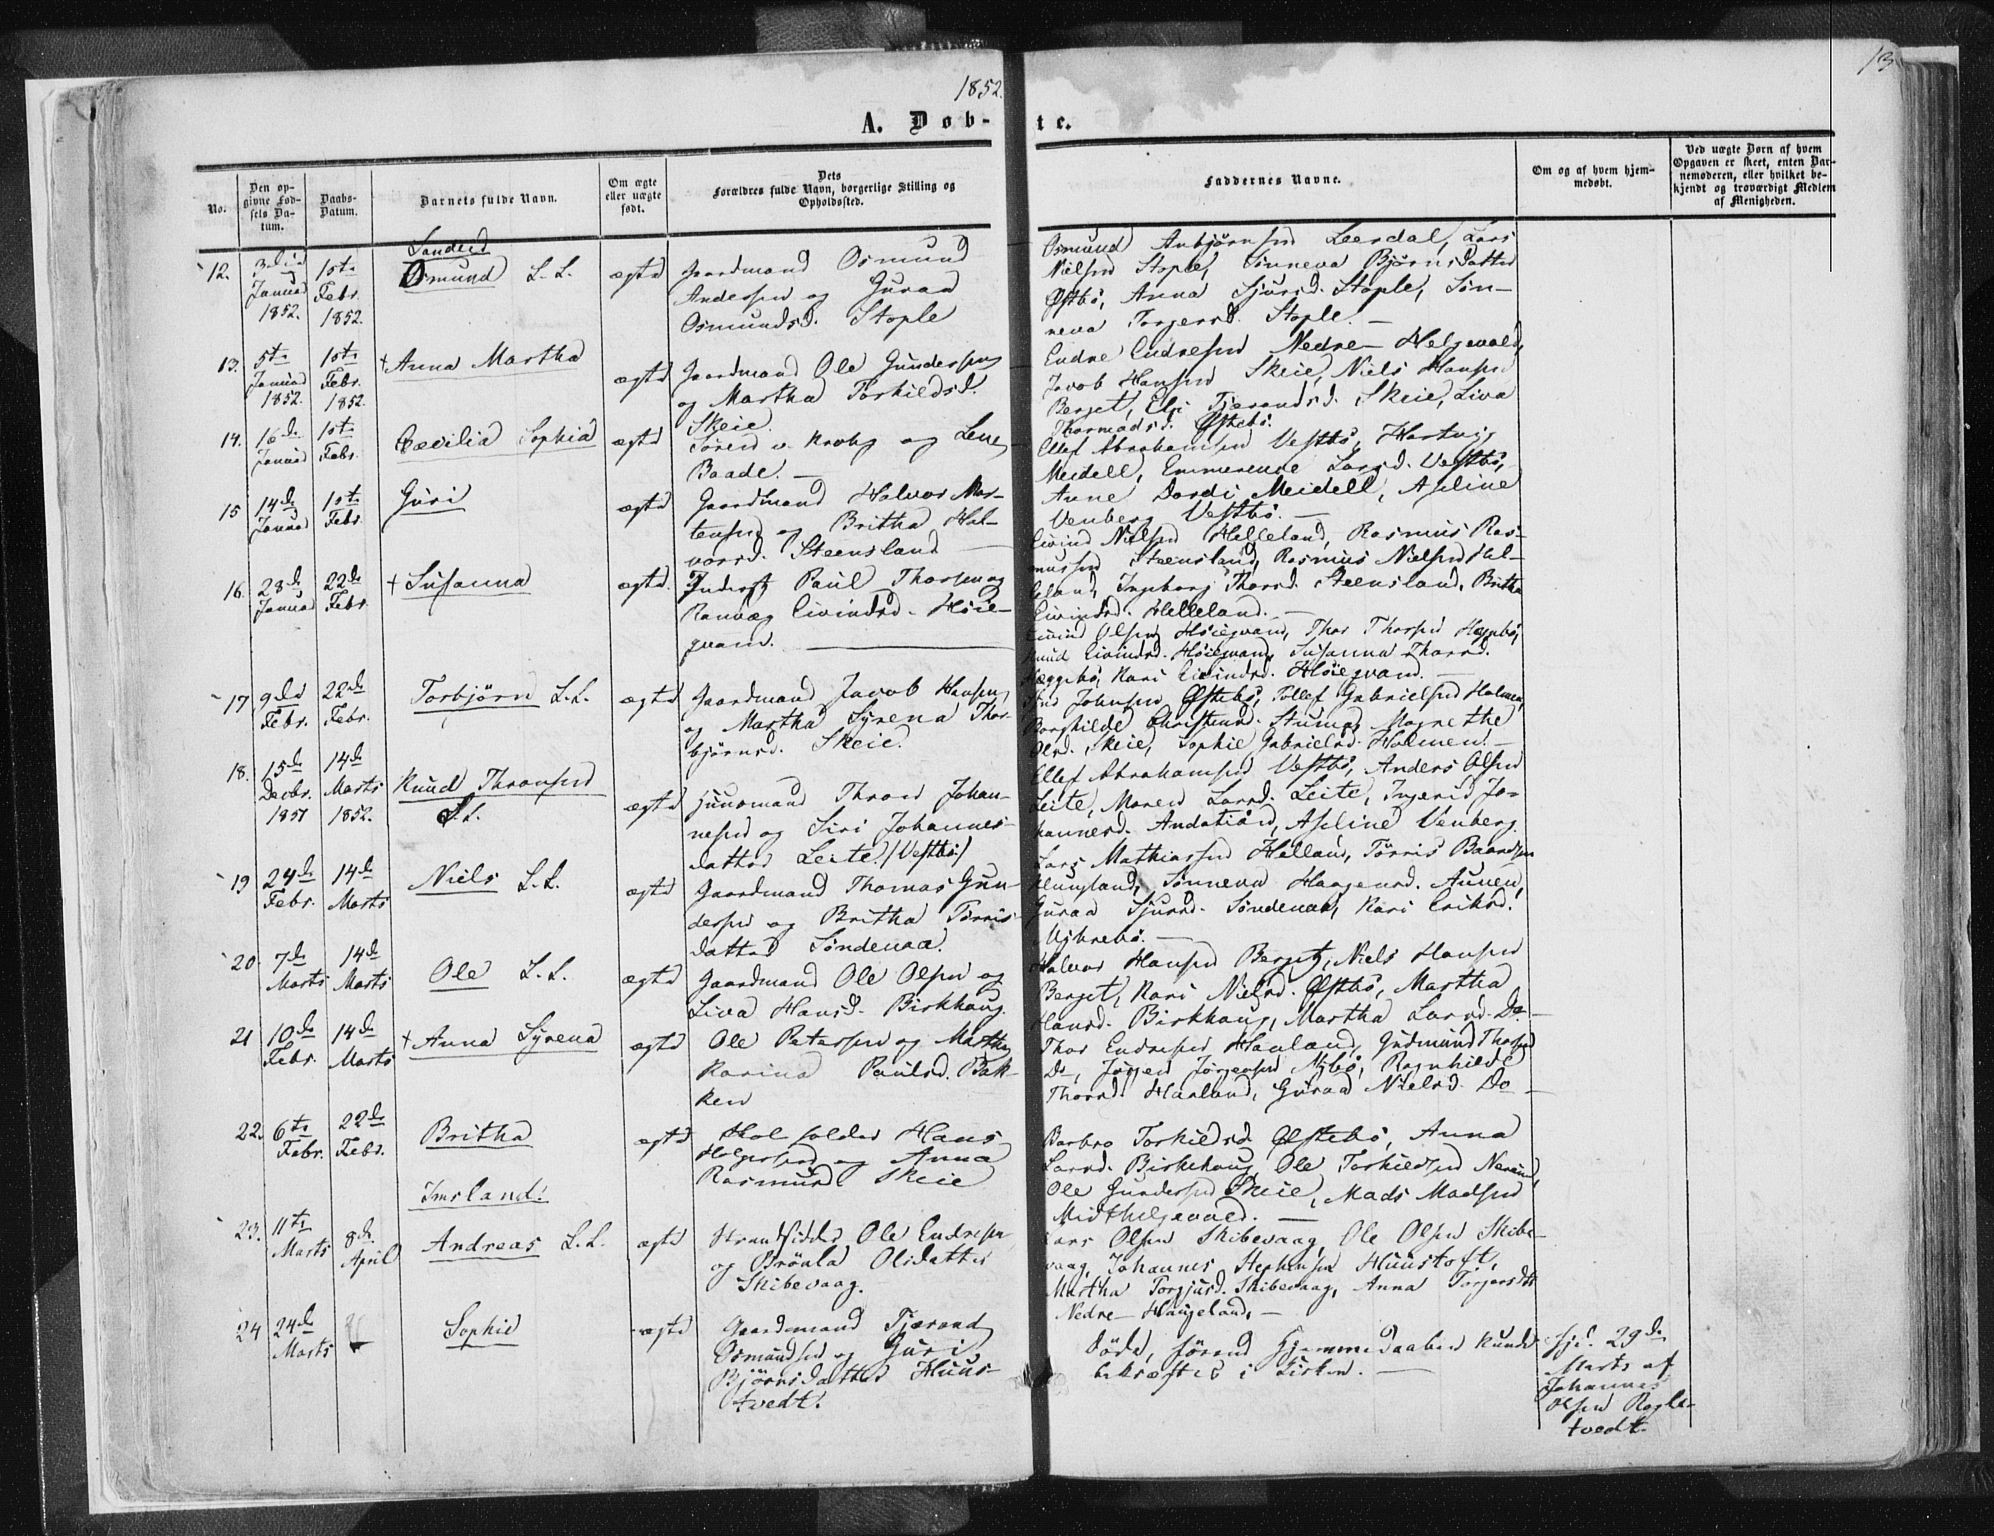 1852.
13
A. Døb-
te.
No.
Den op-
givne Fød-
sels Da-
tum.
Daabs-
Datum.
Barnets fulde Navn.
Om ægte
eller uægte
født.
Dets
Forældres fulde Navn, borgerlige Stilling og
Opholdssted.
Faddernes Navne.
Om og af hvem hjem-
medøbt.
Ved uægte Børn af hvem
Opgaven er skeet, enten Bar-
nemoderen, eller hvilket be-
kjendt og troværdigt Medlem
af Menigheden.
Sandeid
12.
Januar
1852.
1ste
Febr.
1852.
Osmund L. L.
ægte
Gaardmand Osmund
Andersen og Guraa
Osmundsd. Stople
Osmund Anbjørnsen Leerdal, Lars
Nielsen Stople, Sinneva Bjørnsdatter
Østbö, Anna Sjursd. Stople, Sin-
neva Torgersd. Stople. —
13.
5te
Januar
1852.
1ste
Febr.
1852.
+ Anna Martha
ægte
Gaardmand Ole Gundersen
og Martha Torkildsd.
Skeie.
Endre Endresen Nedre-Helgevold,
Jacob Hansen Skeie, Niels Hansen
Berget, Eli Tjerandsd. Skeie, Liva
Thormodsd. Østebö.
14.
16de
Januar
1ste
Febr.
Cæcilia Sophia
ægte
Sören v. Krohg og Lene
Baade. —
Ellef Abrahamsen Vestbö, Hartvig
Meidell, Emmerence Larsd. Vestbö,
Anne Dordi Meidell, Aseline
Venberg Vestbö. —
15
14de
Januar
1ste
Febr.
Guri
ægte
Gaardmand Halvor Mor-
tensen og Britha Hal-
vorsd. Steensland —
Eivind Nielsen Helleland, Rasmus Ras-
mussen Steensland, Rasmus Nielsen Hel-
leland, Ingeborg Thorsd. Steensland, Britha
Eivindsd. Helleland. —
16.
28de
Januar
22de
Febr.
+ Susanna
ægte
Inderst Paul Thorsen og
Ranveg Eivindsd. Höie-
qvam. —
Eivind Olsen Höieqvam, Thor Thorsen Hæggebö,
Knud Eivindsd. Höieqvam, Susanna Thorsd.
Hæggebö, Kari Eivindsd. Höieqvam. —
17
9de
Febr.
22de
Febr.
Torbjörn L. L.
ægte
Gaardmand Jacob Hansen
og Martha Syrena Thor-
björnsd. Skeie.
Johnsen Østebö, Tollef Gabrielsen Holmen,
Borghilde Christensd. Stumo, Magnethe
Olsd. Skeie, Sophie Gabrielsd. Holmen. —
18.
15de
Decbr.
1851
14de
Marts
1852.
Knud Thronsen
L. L.
ægte
Huusmand Thron Johan-
nesen og Siri Johannes-
datter Leite (Vestbö)
Ellef Abrahamsen Vestbö, Anders Olsen
Leite, Maren Larsd. Leite, Ingerid Jo-
hannesd. Aseline Venberg
19
24de
Febr.
14de
Marts
Niels L. L.
ægte
Gaardmand Thomas Gun-
dersen og Britha Törris-
datter Söndenaa.
Lars Mathiassen Helland, Törris Baardsen
Hougland, Sönneva Haagensd. Aunen,
Guraa Sjursd. Söndenaa, Kari Eriksd.
Mikrebö. —
20
7de
Marts
14de
Marts
Ole L. L.
ægte
Gaardmand Ole Olsen og
Liva Hansd. Birkhaug
Halvor Hansen Berget, Niels Hansen
Berget, Kari Nielsd. Østbö, Martha
Hansd. Birkhaug, Martha Larsd. Do —
21
10de
Febr.
14de
Marts
+ Anna Syrena
ægte
Ole Petersen og Martha
Karina Paulsd. Bak-
ken
Thor Endresen Haaland, Gudmund Thorsen
Do, Jörgen Jörgensen Nybö, Ragnhilde
Thorsd. Haaland, Guraa Nielsd. Do —
22.
6te
Febr.
22de
Febr.
Britha
ægte
Hans
Holgersen og Anna
Rasmusd. Skeie
Barbro Torkildsd. Østebö, Anna
Larsd. Birkehaug, Ole Torkildsen
Ole Gundersen Skeie, Mads Madsen
Midthelgevold. —
Imsland.
23.
11te
Marts
8de
April
Andreas L. L.
ægte
Strandsidder Ole Endresen
og Bröula Olsdatter
Skibevaag.
Lars Olsen Skibevaag, Ole Olsen Skibe-
vaag, Johannes Stephensen Huustoft,
Martha Torgjusd. Skibevaag, Anna Torgersdtr
Nedre-Haugeland. —
24
24de
Marts
Sophie
ægte
Gaardmand Tjærand
Osmundsen og Guri
Björnsdatter Huus-
tvedt.
Döde, förend Hjemmedaaben kunde
bekræftes i Kirken. —
29de
Marts af
Johannes
Olsen Regle-
tvedt.